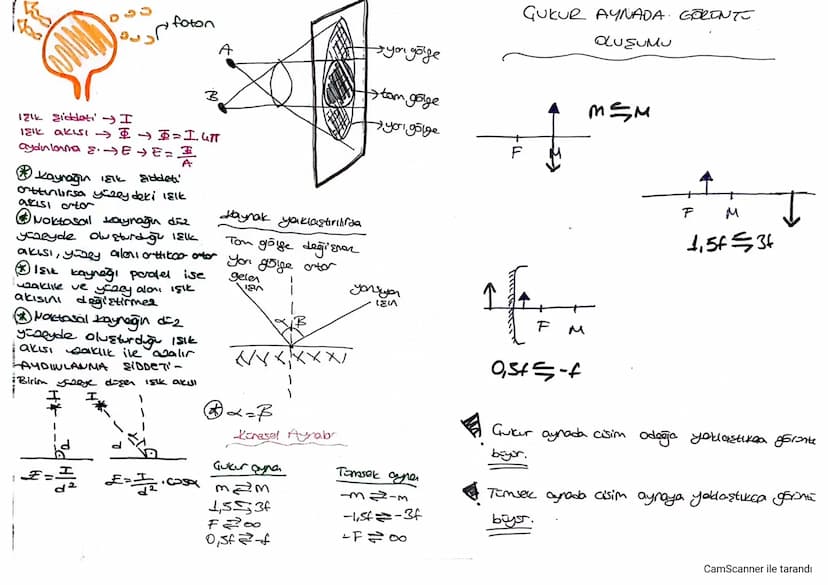 foton
Işık şiddeti → I
Işık akısı → Φ → Φ = I 4π
aydınlanma ş. → E → E = Φ/A
* Kaynağın ışık şiddeti
arttırılırsa yüzeydeki ışık
akısı artar
* Noktasal kaynağın düz
yüzeyde oluşturduğu ışık
akısı, yüzey alanı arttıkça artar
* Işık kaynağı paralel ise
uzaklık ve yüzey alanı ışık
akısını değiştirmez
* Noktasal kaynağın düz
yüzeyde oluşturduğu ışık
akısı uzaklık ile azalır
-AYDINLANMA ŞİDDETİ-
Birim yüzeye düşen ışık akısı
I
I
d
d
α
E = I/d²
E = I/d² . cosα
A
B
yarı gölge
tam gölge
yarı gölge
Kaynak yaklaştırılırsa
Tam gölge değişmez
Yarı gölge artar
gelen
ışın
yansıyan
ışın
α B
* α = B
Küresel Aynalar
Çukur ayna
M ⇄ M
1,5 ⇆ 3f
F ⇄ ∞
0,5f ⇄ -f
Tümsek ayna
-M ⇄ -M
-1,5f ⇄ -3f
-F ⇄ ∞
ÇUKUR AYNADA GÖRÜNTÜ
OLUŞUMU
M ⇆ M
F M
F M
1,5f ⇆ 3f
F M
0,5f ⇆ -f
Çukur aynada cisim odağa yaklaştıkça görüntü
büyür.
Tümsek aynada cisim aynaya yaklaştıkça görüntü
büyür.
CamScanner ile tarandı